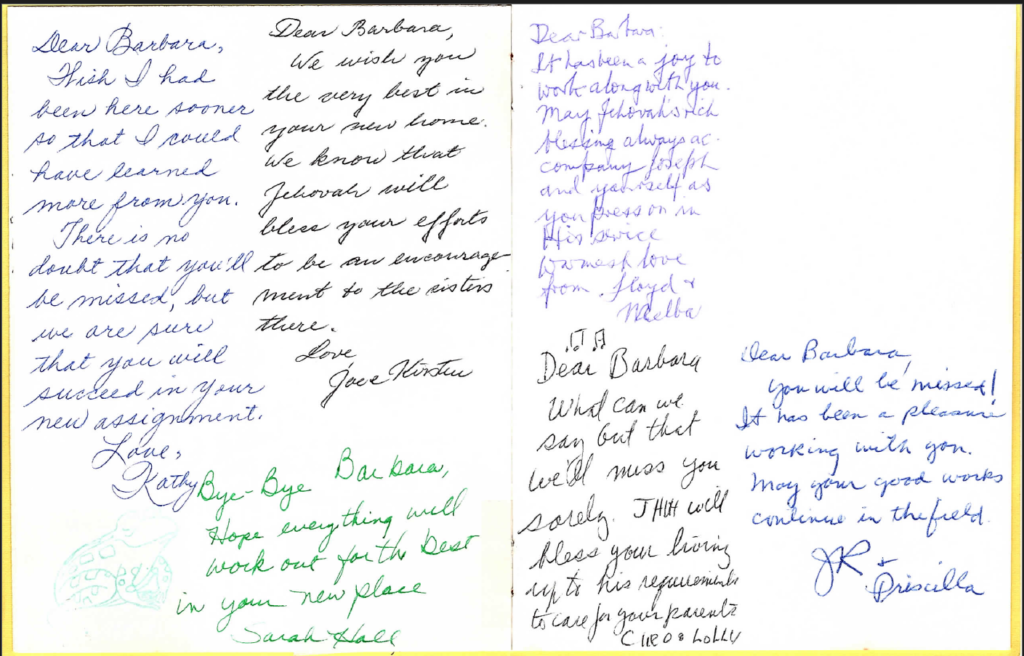 Dear Barbara,
Wish I had
been here sooner
so that I could
have learned
more from you.
There is no
doubt that you'll
be missed, but
we are sure
that you will
succeed in your
new assignment.
Love,
Kathy
Dear Barbara,
We wish you
the very best in
your new home.
We know that
Jehovah will
bless your efforts
to be an encourage-
ment to the sisters
there.
Love
Bye-Bye Barbara,
Hope everything will
work out for the best
in your new place
Sarah Hall
Dear Barbara:
It has been a joy to
work along with you.
May Jehovah's rich
blessing always ac-
company Joseph
and yourself as
you press on in
His service
Warmest love
from, Floyd &
Melba
Dear Barbara
What can we
say but that
we'll miss you
sorely. JHVH will
bless your living
up to his requirements
to care for your parents
Ciro & Lolly
Dear Barbara,
You will be missed!
It has been a pleasure
working with you.
May your good works
continue in the field.
JR +
Priscilla